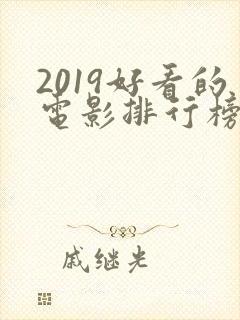 2019好看的
电影排行榜
戚继光